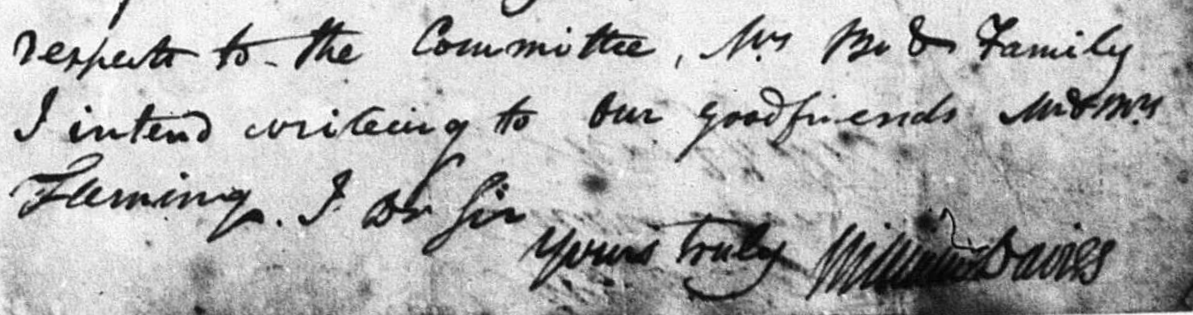 respects to the Committee, Mrs Bu & Family
I intend writeing to our good friends Mr & Mrs
Flaming. I Dr Sir
Yours truly William Davies